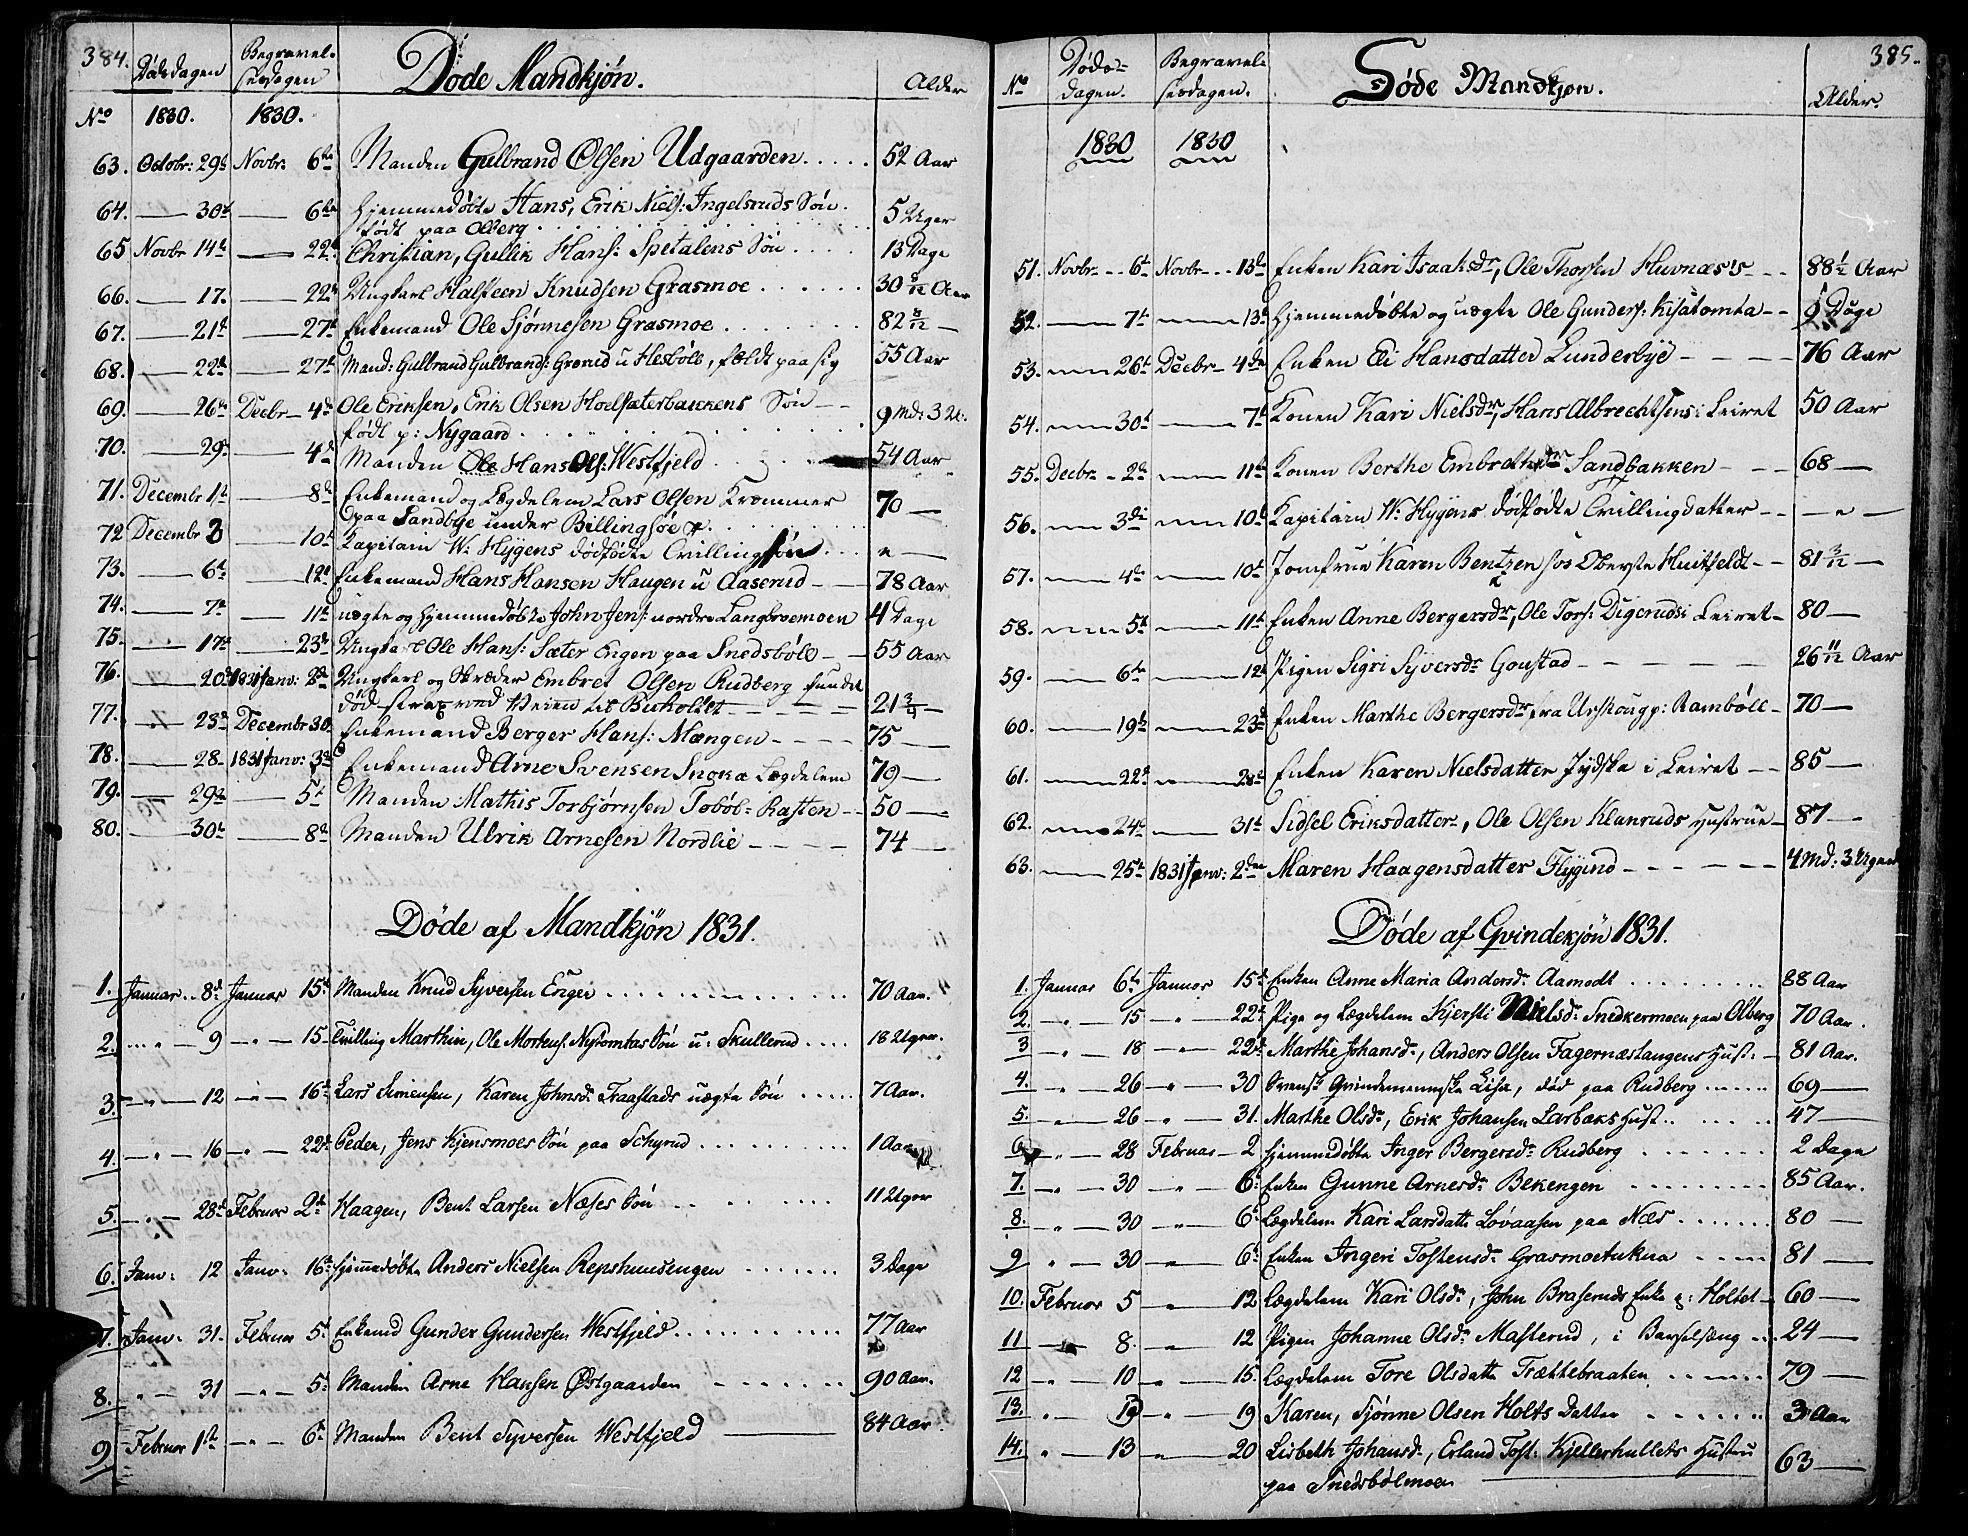 384.
Dødsdagen
Begravel-
sesdagen
Døde Mandkjøn.
Alder
No 1830. 1830.
63. Octobr: 29de Novbr: 6te Manden Gulbrand Olsen Udgaarden..... 52 Aar
64. —— 30te —— 6te Hjemmedøbte Hans, Erik Niels: Ingelsruds Søn
født paa Olberg ........ 5 Uger
65 Novbr 14de —— 22de Christian, Gullik Hans: Spetalens Søn .... 13 Dage
66. —— 17. —— 22de Ungkarl Halsteen Knudsen Grasmoe ...... 30 9/12 Aar
67. —— 21de —— 27de Enkemand Ole Sjønnesen Grasmoe ....... 82 8/12 —
68. —— 22de —— 27de Mand: Gulbrand Gulbrands: Grærud u Hesbøll, fældt paa sig 55 Aar
69. —— 26de Decbr— 4de Ole Eriksen, Erik Olsen Hoelsæterbakkens Søn —
født p: Nygaard ........ 9 Md: 3 U:
70. —— 29de —— 4de Manden Ole Hans Ols: Westfjeld .... 54 Aar
71. Decembr 1ste —— 8de Enkemand og Lægdelem Lars Olsen Kræmmer
paa Sandbye under Billingsøe ...... 70 —
72 Decembr 3 —— 10de Kapitain W: Hygens dødfødte Tvillingsøn ... " —
73. —— 6te —— 12te Enkemand Hans Hansen Haugen u Aaserud — 78 Aar
74. —— 7de —— 11te uægte og hjemmedøbte John Jens: nordre Langbroemoen 4 Dage
75. —— 17de —— 23de Ungkarl Ole Hans: Sæter Engen paa Snedsbøle — 55 Aar
76. —— 20de 1831 Janv: 2den Ungkarl og Skræder Embret Olsen Rudberg fundet
død strax ved Veien til Bierholtet — 21 3/4 —
77. —— 23de Decembr 30 Enkemand Berger Hans: Mangen — 75 —
78. —— 28— 1831 Janv: 3de Enkemand Arne Svensen Snoka Lægdelem 79 —
79. —— 29de —— 5te Manden Mathis Torbjørnsen Tobøl-Kasten — 50 —
80. —— 30te —— 8de Manden Ulrik Arnesen Nordlie — 74 —
Døde af Mandkjøn 1831.
1. Januar.. 8de Januar 15de Manden Knud Syversen Enger ........ 70 Aar.
2. — " — 9 — " — 15— Tvilling Marthin, Ole Mortens: Nystomtas Søn u: Skullerud .... 18 Uger.
3. — " — 12 — " — 16de Lars Simensen, Karen Johnsdr Traastads uægte Søn ..... 7 Aar.
4. — " — 16 — " — 22de Peder, Jens Kjensmoes Søn paa Schyrud ....... 1 Aar
5. — " — 28de Februar 2de Haagen, Bent Larsen Næses Søn ....... 11 Uger
6. Janv: 12 Janv: 16de hjemmedøbte Anders Nielsen Repshuusengen ....... 3 Dage
7. Janv: 31. Februar 5te Enkemd Gunder Gundersen Westfjeld ......... 77 Aar
8. " — 31 — " — 5te Manden Arne Hansen Østgaarden ....... 90 Aar.
9 Februar 1ste — " — 6te Manden Bent Syversen Westfjeld —— 84 Aar
385.
No
Døds-
dagen.
Begravel-
sesdagen.
Døde Mandkjøn.
Alder.
1830 1830
51. Novbr — 6te Novbr — 13de Enken Kari Isaaksdr, Ole Thorsen Huvnæs's — 88 1/2 Aar
52. —— 7de —— 13de Hjemmedøbte og uægte Ole Gunders: Kisatomta — 9 Dage
53. —— 26de Decbr — 4de Enken Eli Hansdatter Lunderbye — 76 Aar
54. —— 30te —— 7de Konen Kari Nielsdr, Hans Albrechtsens i Leiret 50 Aar
55. Decbr — 2de —— 11te Konen Berthe Embretsdr Sandbakken — 68 —
56. —— 3die —— 10de Kapitain W: Hygens dødfødte Tvillingdatter — " —
57. —— 4de —— 10de Jomfrue Karen Bentzen hos Oberste Huitfeldt — 81 3/12 —
58. —— 5te —— 11te Enken Anne Bergersdr, Ole Tors: Digeruds i Leiret — 80 —
59. —— 6te —— 12te Pigen Sigri Syversdr Goustad — 26 11/12 Aar
60. —— 19de —— 23de Enken Marthe Bergersdr fra Urskoug p: Rambøll — 70 —
61. —— 22de —— 28de Enken Karen Nielsdatter Jydska i Leiret — 85 —
62. —— 24de —— 31te Sidsel Eriksdatter, Ole Olsen Klanruds Hustrue — 87 —
63. —— 25de 1831 Janv: 2den Maren Haagensdatter Flygind — 4 Md: 3 Uger
Døde af Qvindekjøn 1831.
1. Januar 6te Januar 15de Enken Anne Maria Andersdr Aamodt ......... 88 Aar
2. — " — 15 — " — 22de Pige og Lægdelem Kjersti Nielsdr Snedkermoen paa Olberg 70 Aar.
3 — " — 18 — " — 22de Marthe Johansdr, Anders Olsen Fagernæstangens Hust: — 81 Aar.
4. — " — 26 — " — 30 Svensk Qvindemenneske Lisa, død paa Rudberg ...... 69 —
5. — " — 26 — " — 31. Marthe Olsdr, Erik Johansen Larbaks Hust.. .... 47 —
6 — " — 28 Februar — 2 hjemmedøbte Inger Bergersdr Rudberg ....... 2 Dage
7. — " — 30 — " — 6te Enken Gunne Arnesdr Bekengen ......... 85 Aar.
8. — " — 30 — " — 6te Lægdelem Kari Larsdattr Løvaasen paa Næs ....... 80 —
9 " — 30 — " — 6te Enken Ingeri Tostensdr Grasmoetukna ..... 81 —
10. Februar 5 — " — 12 Lægdelem Kari Olsdr, John Braseruds Enke p: Holtet — 60 —
11 — " — 8. — " — 12 Pigen Johanne Olsdr Masterud, i Barselsæng ... 24 —
12 — " — 10 — " — 15. Lægdelem Tore Olsdattr Trættebraaten ....... 79 —
13. " — 10 — " — 19 Karen, Sjønne Olsen Holts Datter ...... 3 Aar
14. " — 13 — " — 20 Lisbeth Johansdr, Erland Tost: Kjellerhullets Hustru
paa Snedsbølmoen —— 63 —